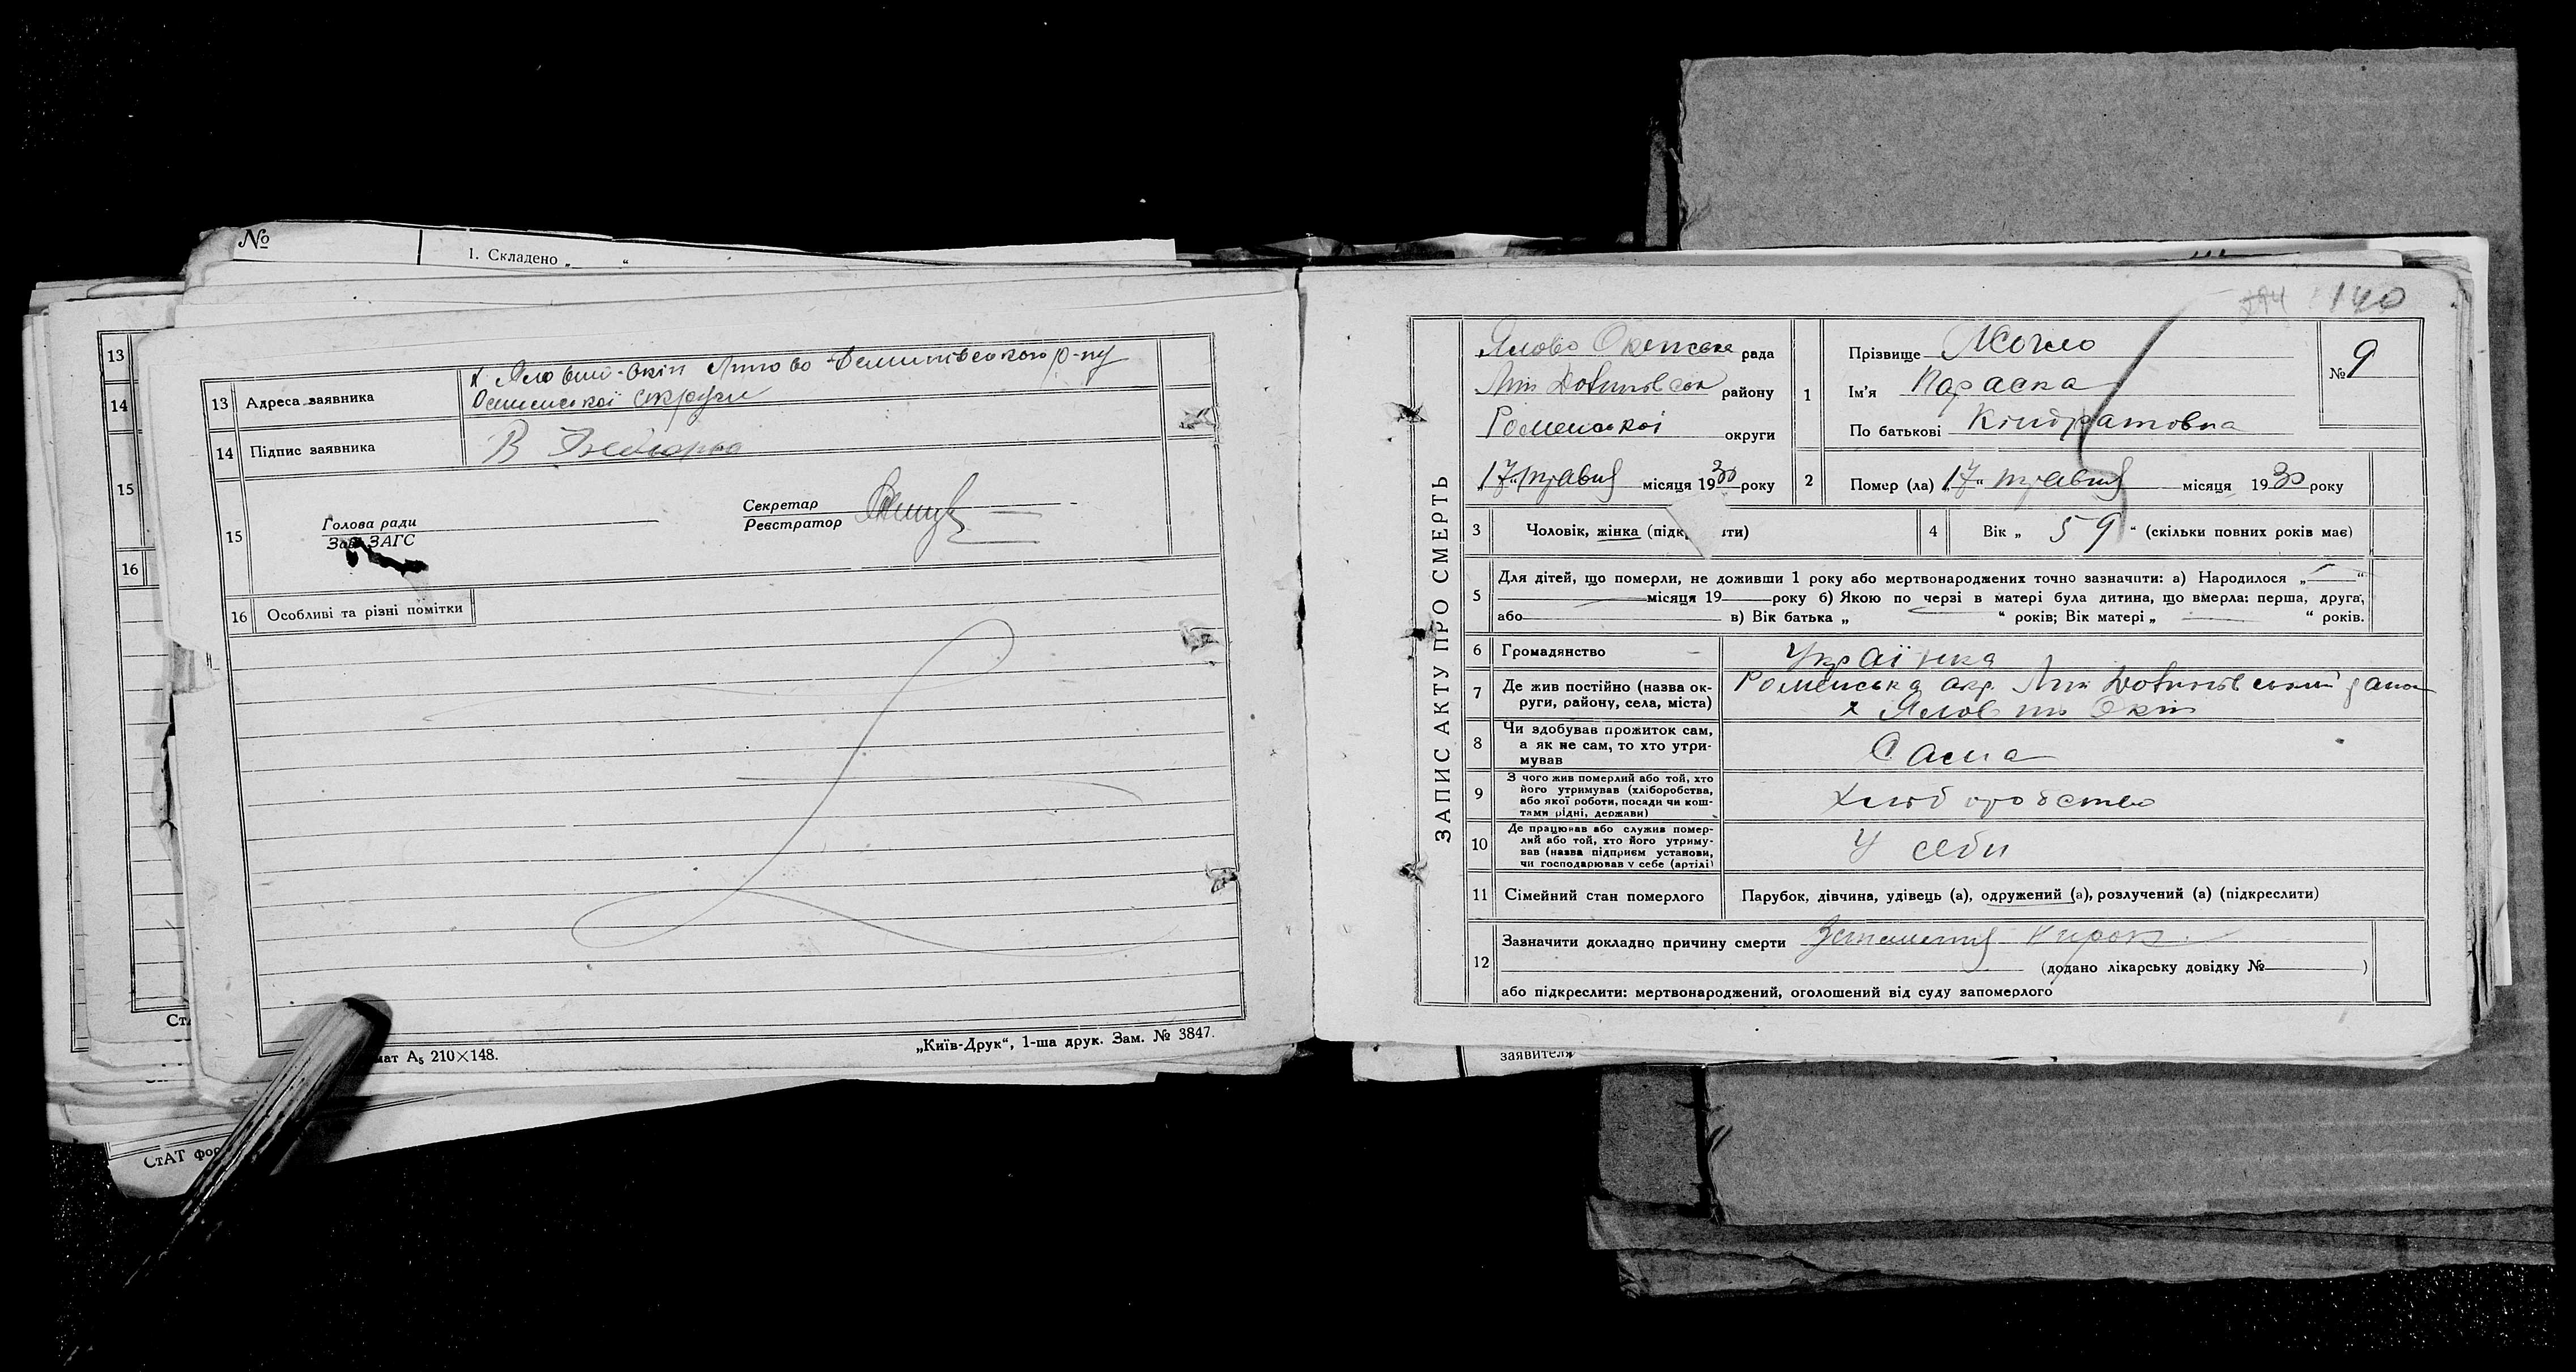 №
1. Складено „ “
13
14
15
16
13 Адреса заявника х Яловий-Окіп Липово-Долинського р-ну
Роменської округи
14 Підпис заявника В
15
Голова ради
Зав. ЗАГС
Секретар
Реєстратор
16 Особливі та різні помітки
мат А5 210×148.
„Київ-Друк“, 1-ша друк. Зам. № 3847.
СтАТ фор
140
ЗАПИС АКТУ ПРО СМЕРТЬ
Ялово Окіпська рада
Лип Долинськ району
Роменської округи
„17“ травня місяця 1930 року
1 Прізвище
Ім'я Параска
По батькові Кіндратовна
№ 9
2 Помер (ла) „17“ травня місяця 1930 року
3 Чоловік, жінка (підк ити)
4 Вік „ 59 “ (скільки повних років має)
5 Для дітей, що померли, не доживши 1 року або мертвонароджених точно зазначити: а) Народилося „ “
місяця 19 року б) Якою по черзі в матері була дитина, що вмерла: перша, друга,
або в) Вік батька „ “ років; Вік матері „ “ років.
6 Громадянство Українка
7 Де жив постійно (назва ок-
руги, району, села, міста)
Роменська окр. Лип Долинський район
х Яловий Окіп
8 Чи здобував прожиток сам,
а як не сам, то хто утри-
мував
Сама
9 З чого жив померлий або той, хто
його утримував (хліборобства,
або якої роботи, посади чи кош-
тами рідні, держави)
Хліборобство
10 Де працював або служив помер-
лий або той, хто його утриму-
вав (назва підприєм установи,
чи господарював у себе (артілі)
У себи
11 Сімейний стан померлого Парубок, дівчина, удівець (а), одружений (а), розлучений (а) (підкреслити)
12 Зазначити докладно причину смерти
(додано лікарську довідку № )
або підкреслити: мертвонароджений, оголошений від суду запомерлого
заявителя